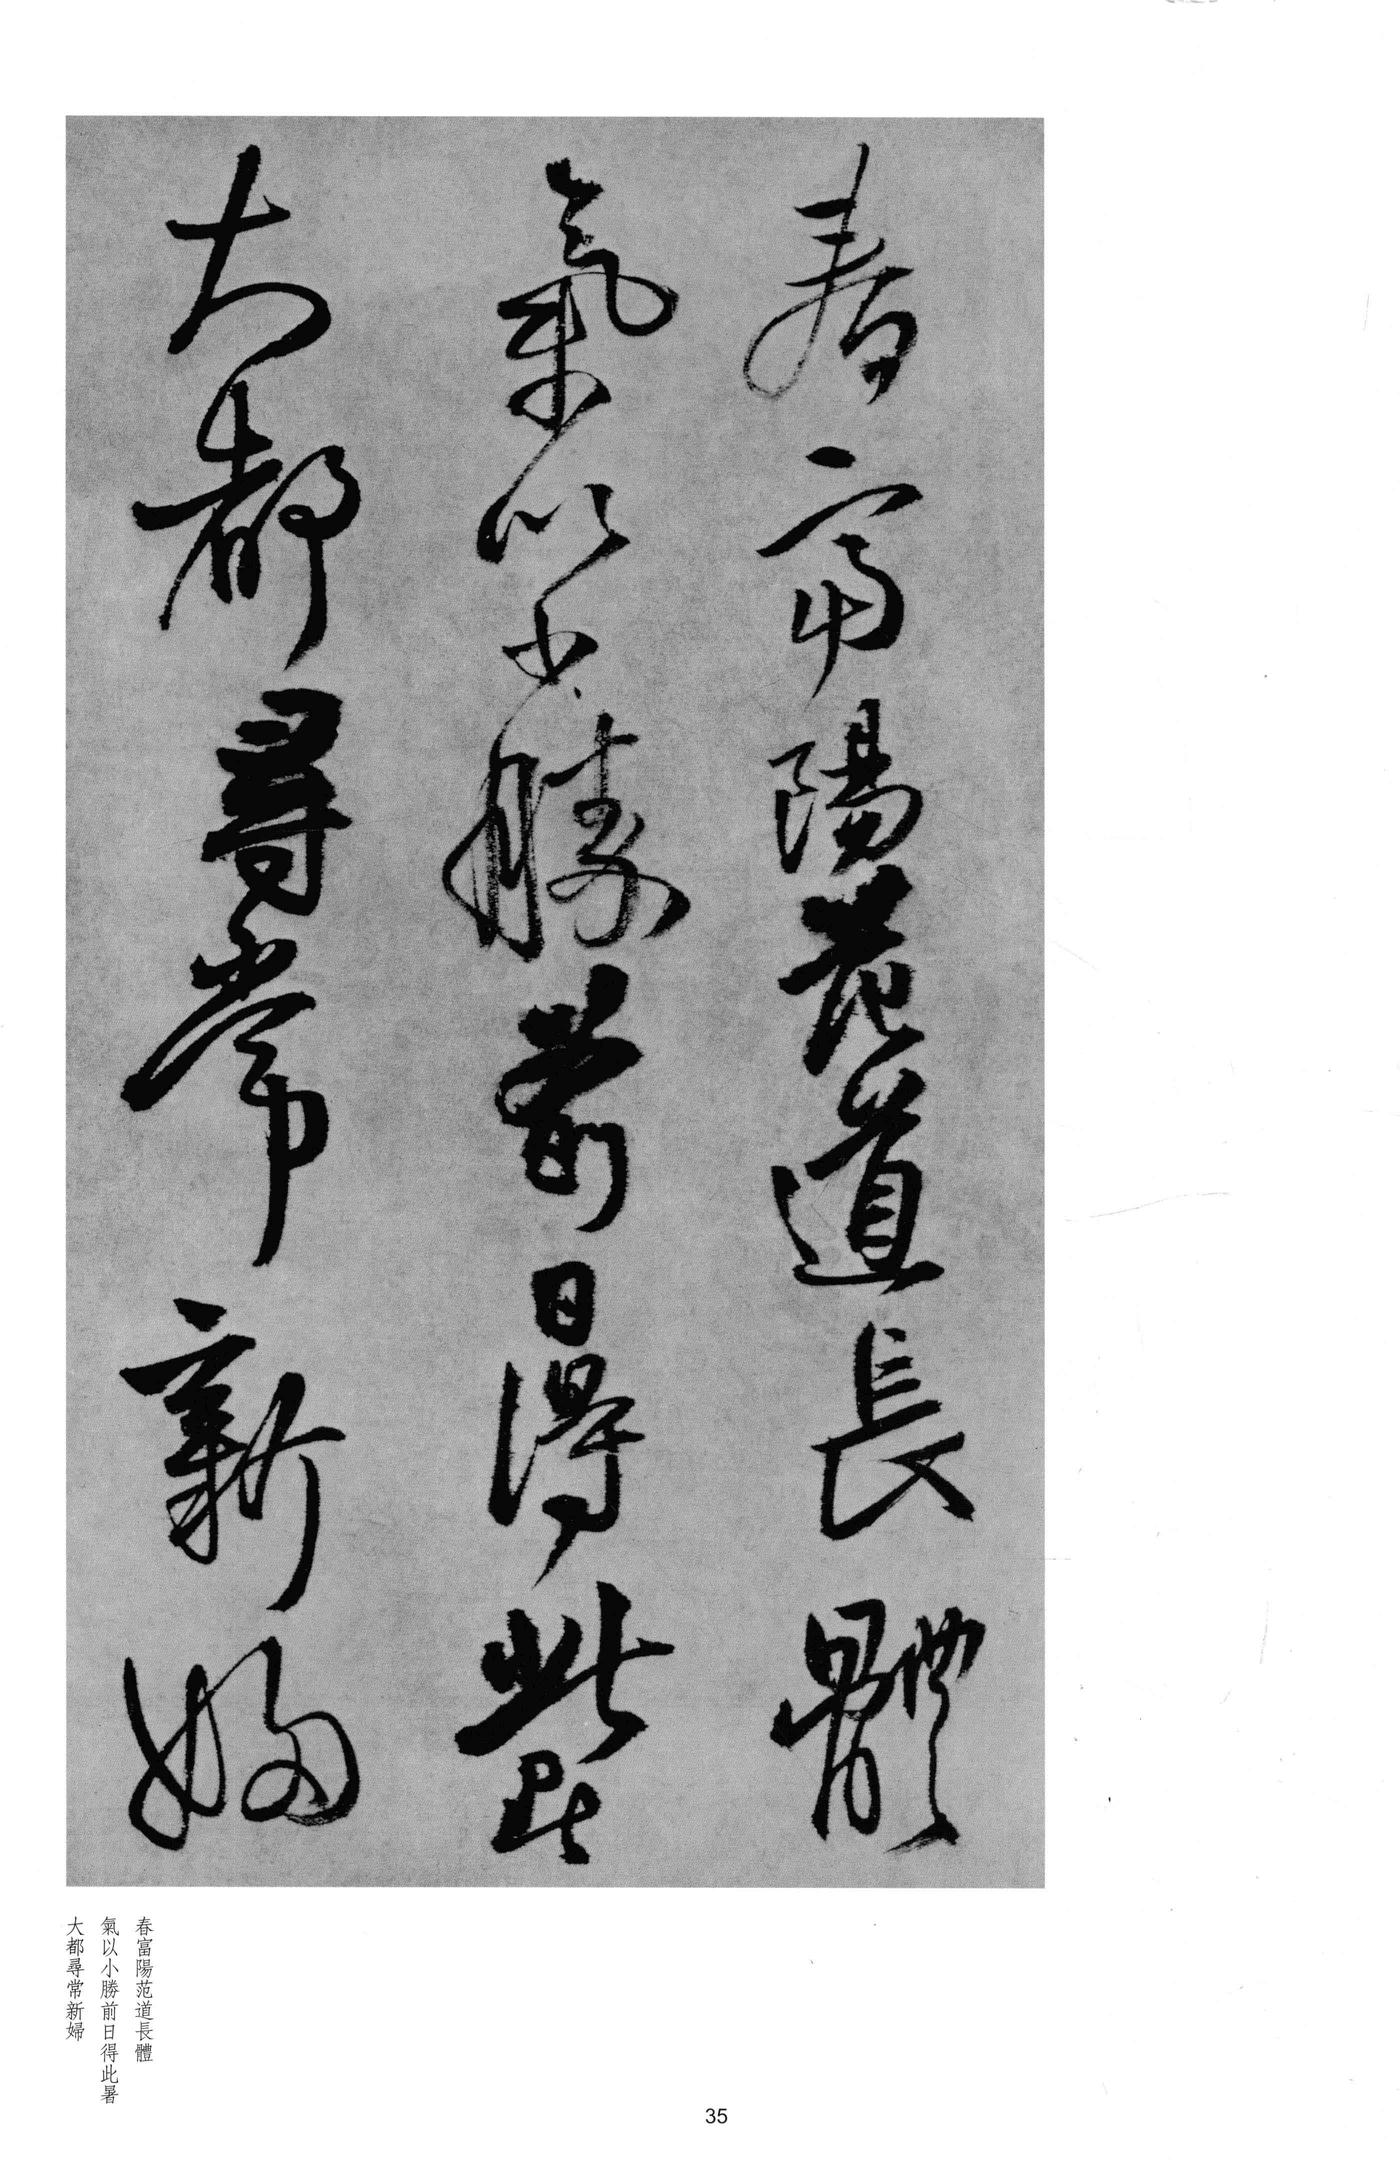 春富陽范道長體
氣以小勝前日得此暑
大都尋常新婦
春富陽范道長體
氣以小勝前日得此暑
大都尋常新婦
35